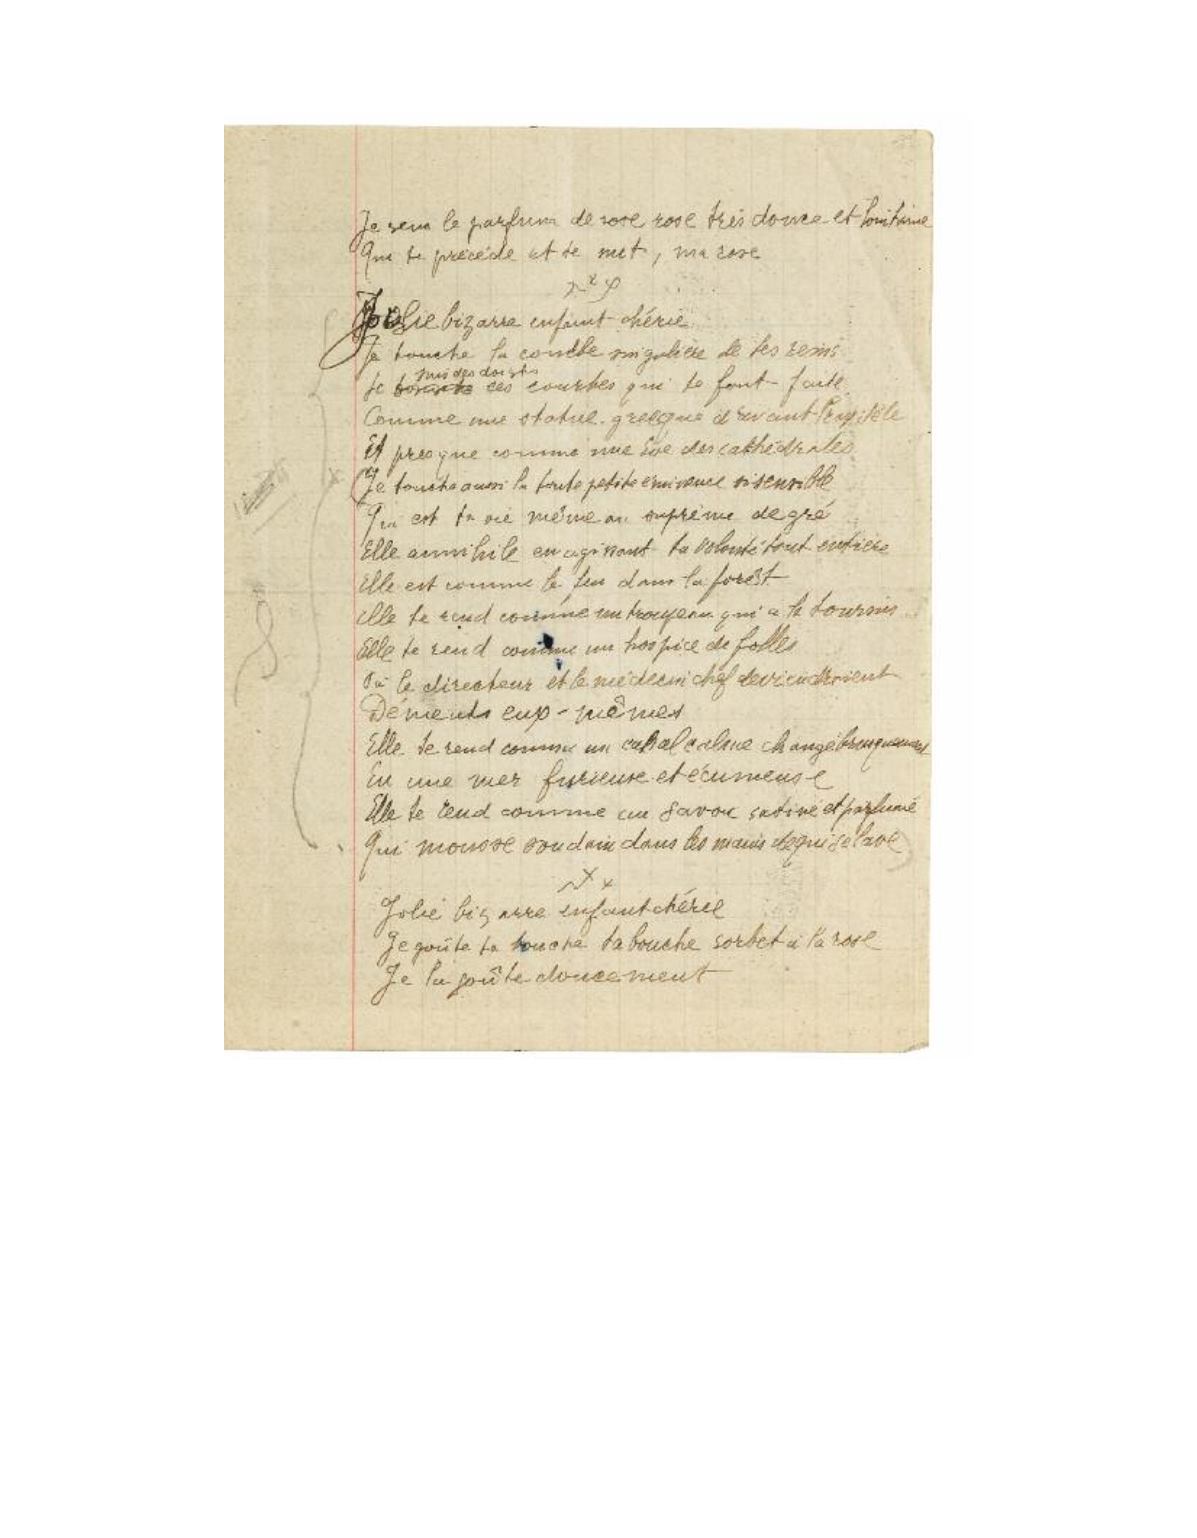 Je sens le parfum de rose rose très douce et lointaine
Qui te précède et te suit, ma rose
Jolie bizarre enfant chérie
Je touche la courbe singulière de tes reins
suis des doigts
Je ces courbes qui te font faite
Comme une statue grecque d'avant Praxitèle
Et presque comme une Eve des cathédrales
Je touche aussi la toute petite éminence si sensible
Qui est ta vie même au suprême degré
Elle annihile en agissant ta volonté tout entière
Elle est comme le feu dans la forêt
Elle te rend comme un troupeau qui a le tournis
Elle te rend comme un hospice de folles
Où le directeur et le médecin chef deviendraient
Déments eux-mêmes
Elle te rend comme un canal calme changé brusquement
En une mer furieuse et écumeuse
Elle te rend comme un savon satiné et parfumé
Qui mousse soudain dans les mains de qui se lave
Jolie bizarre enfant chérie
Je goûte ta bouche ta bouche sorbet à la rose
Je la goûte doucement